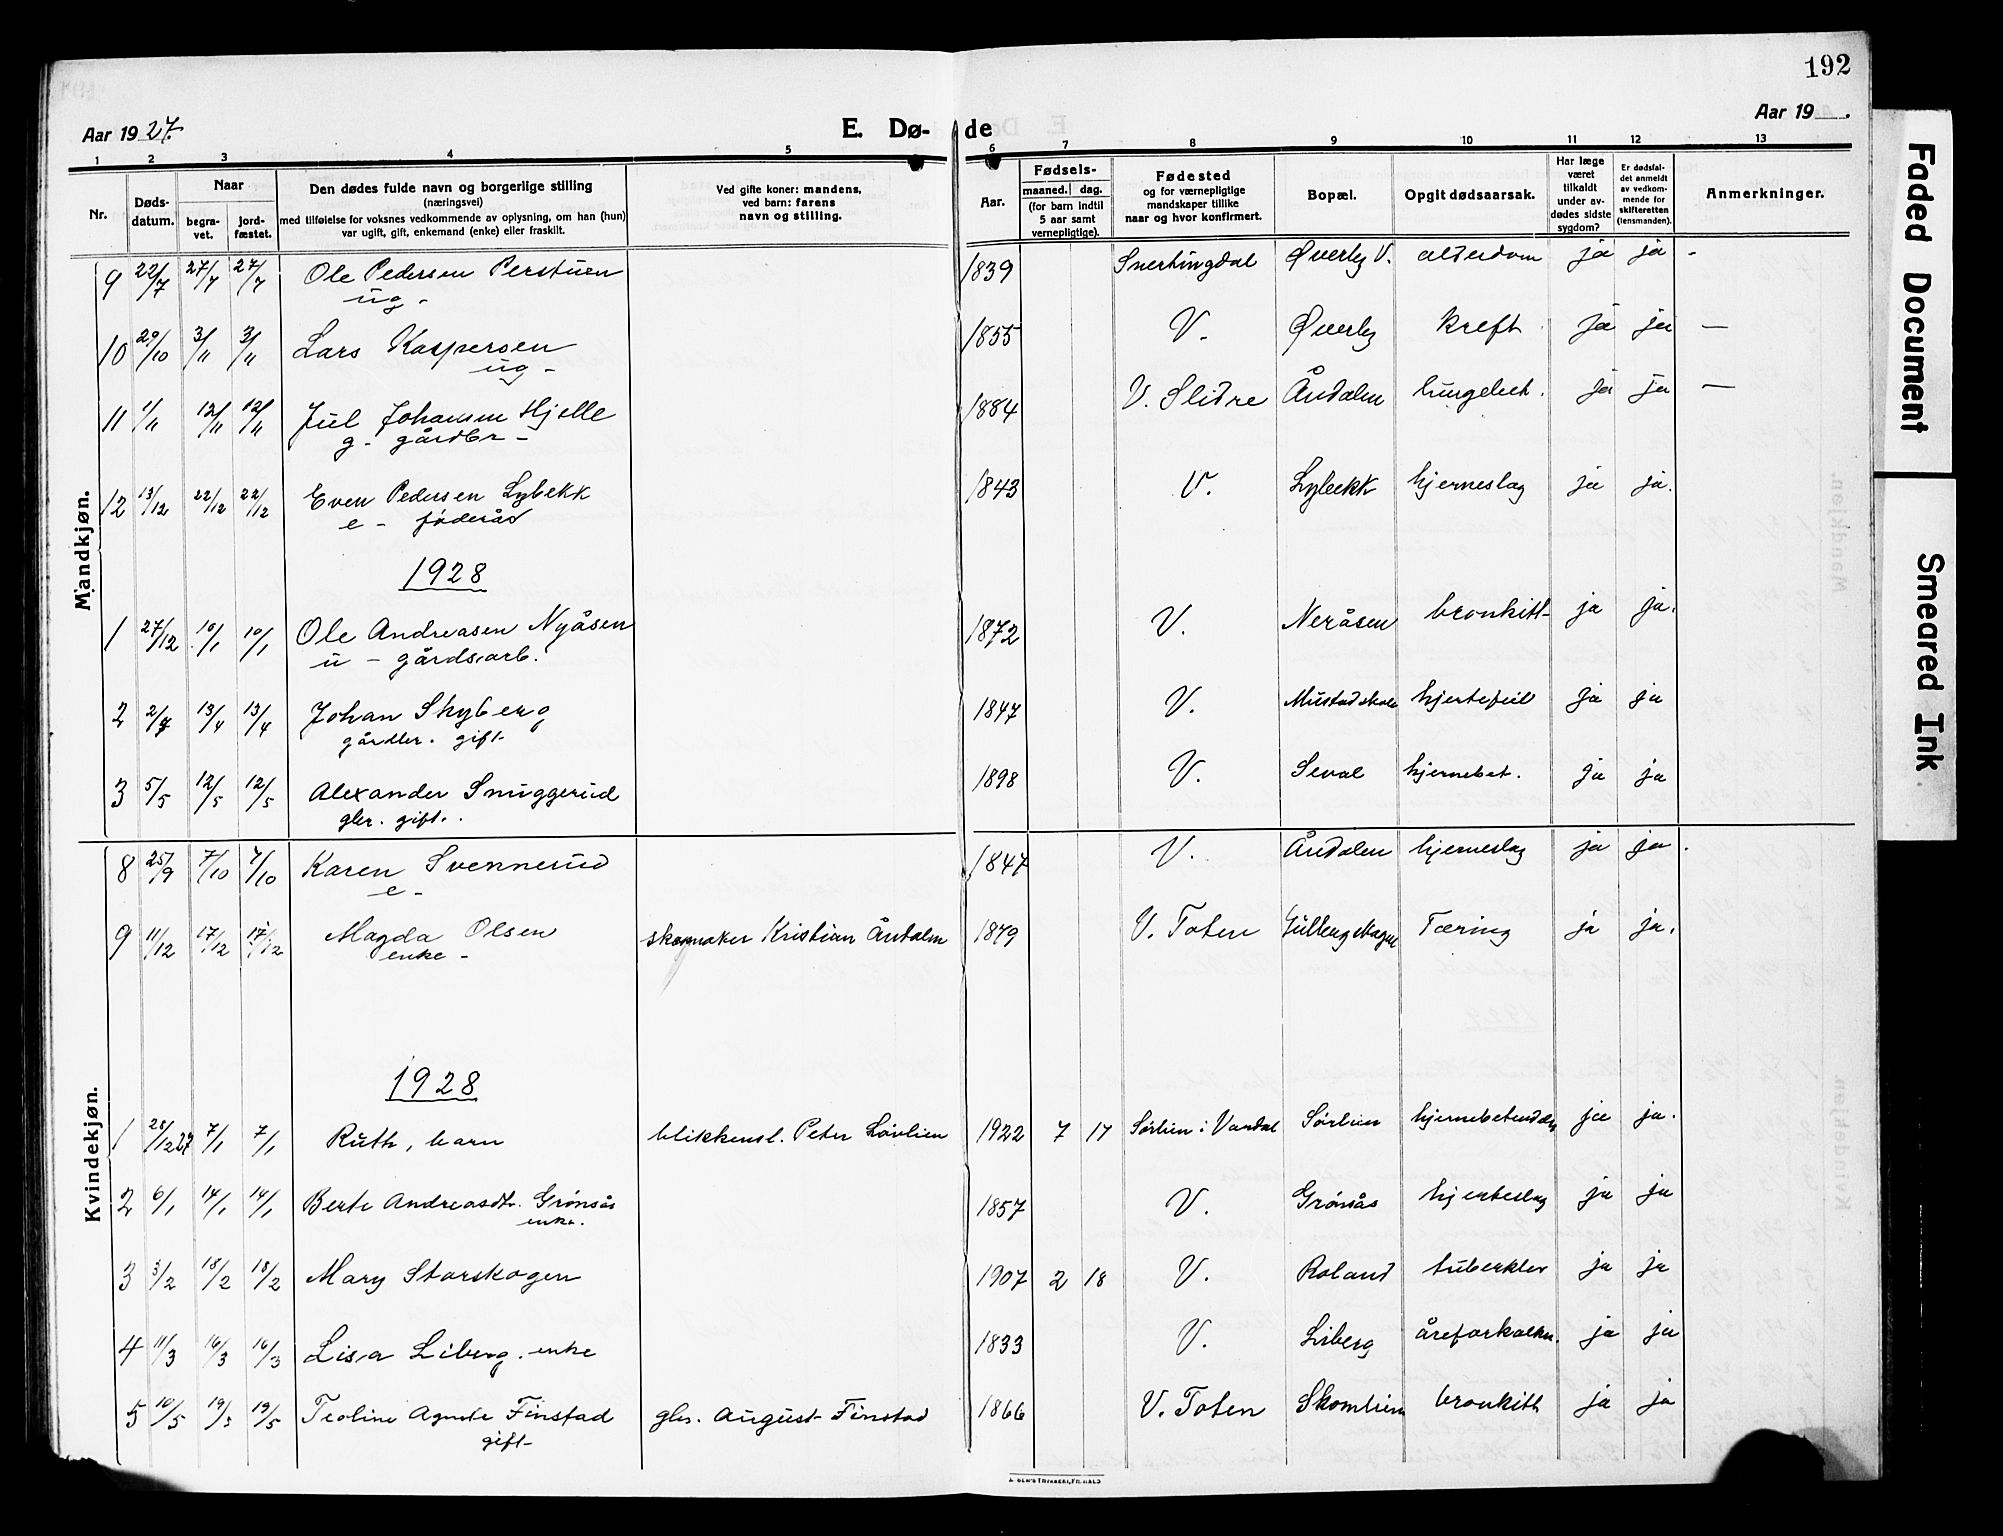 192
Aar 1927.
E. Dø-
de
Aar 19   .
1 2 3 4 5 6 7 8 9 10 11 12 13
Nr.
Døds-
datum.
Naar
begra-
vet.
jord-
fæstet.
Den dødes fulde navn og borgerlige stilling
(næringsvei)
med tilføielse for voksnes vedkommende av oplysning, om han (hun)
var ugift, gift, enkemand (enke) eller fraskilt.
Ved gifte koner: mandens,
ved barn: farens
navn og stilling.
Aar.
Fødsels-
maaned. dag.
(for barn indtil
5 aar samt
vernepligtige).
Fødested
og for værnepligtige
mandskaper tillike
naar og hvor konfirmert.
Bopæl.
Opgit dødsaarsak.
Har læge
været
tilkaldt
under av-
dødes sidste
sygdom?
Er dødsfal-
det anmeldt
av vedkom-
mende for
skifteretten
(lensmanden).
Anmerkninger.
Mandkjøn.
9 22/7 27/7 27/7 Ole Pedersen Perstuen 1839 Snertingdal Øverby V. alderdom ja ja -
ug -
10 29/10 3/11 3/11 Lars Kaspersen 1855 V. Øverby kreft ja ja —
ug -
11 1/11 12/11 12/11 Jul Johansen Hjelle 1884 V. Slidre Åndalen lungebet. ja ja —
g. gårdbr -
12 13/12 22/12 22/12 Even Pedersen Lybekk 1843 V. Lybekk hjerneslag ja ja.
e - föderåd
1928
1 27/12 10/1 10/1 Ole Andreasen Nyåsen 1872 V. Neråsen bronkitt- ja ja.
u - gårdsarb.
2 2/4 13/4 13/4 Johan Skyberg 1847 V. hjertefeil ja ja
gårdbr. gift-
3 5/5 12/5 12/5 Alexander Snuggerud 1898 V. Seval hjernebet. ja ja
gbr. gift.
Kvindekjøn.
8 25/9 7/10 7/10 Karen Svennerud 1847 V. Åndalen hjerneslag ja ja.
e -
9 11/12 17/12 17/12 Magda Olsen skomaker Kristian Åndalen 1879 V. Toten Tæring ja ja.
enke -
1928
1 28/12 27 7/1 7/1 Ruth, barn blikkensl. Peter Lövlien 1922 7 17 Sörlien i Vardal Sörlien ja ja.
2 6/1 14/1 14/1 Berte Andreasdtr. Grönsås 1857 V. Grönsås hjerteslag ja ja
enke.
3 3/2 18/2 18/2 Mary Storskogen 1907 2 18 V. Roland tuberklor ja ja
4 11/3 16/3 16/3 Lisa Liberg. enke 1833 V. Liberg åreforkalkn. ja ja
5 10/5 19/5 19/5 Teoline Agnete Finstad gbr. August Finstad 1866 V. Toten Skomlien bronkitt ja ja
gift-
Faded Document
Smeared Ink